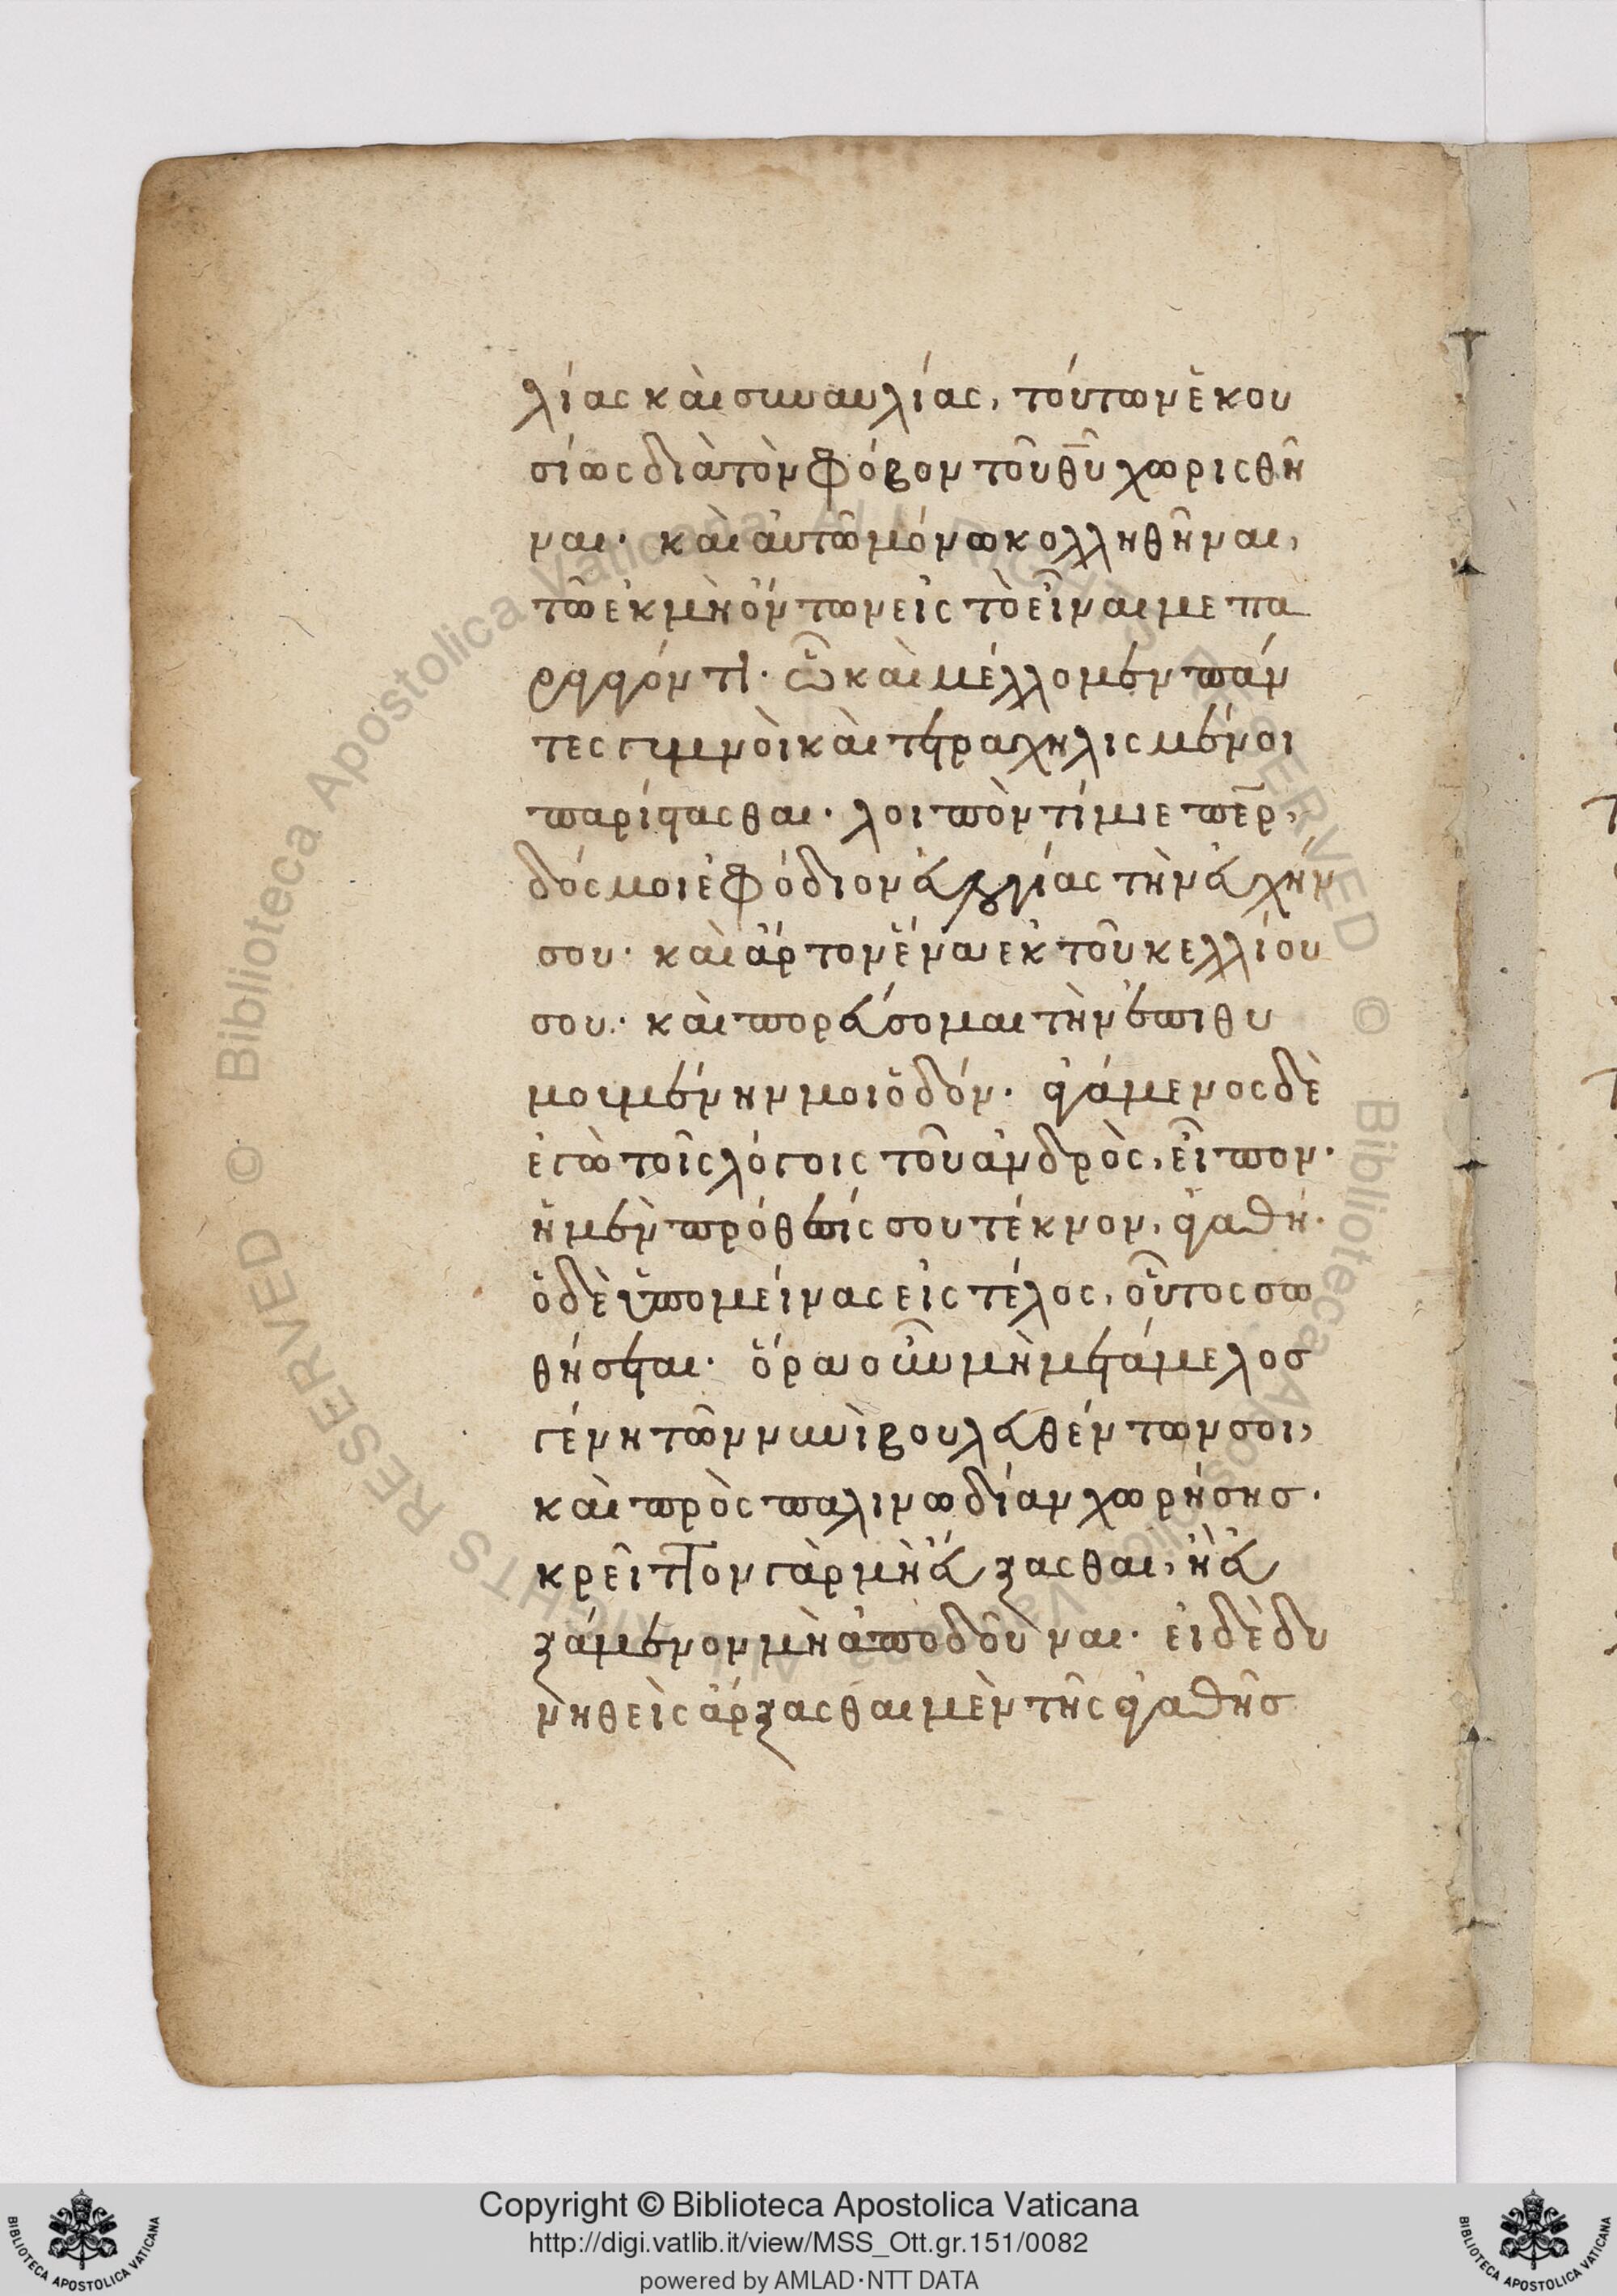 λίας καὶ συναυλίας, τούτων ἑκου
σίως διὰ τὸν φόβον τοῦ θῦ χωρισθῆ
ναι· καὶ αὐτῶ μόνω κολληθῆναι,
τῶ ἐκ μὴ ὄντων εἰς τὸ εἶναι με πα
ραγαγόντι· ὧ καὶ μέλλομεν πάν
τες γυμνοὶ καὶ τετραχηλισμένοι
παρίστασθαι· λοιπὸν τίμιε περ,
δός μοι ἐφόδιον ἁγίας τὴν εὐχήν
σου· καὶ ἄρτον ἕνα ἐκ τοῦ κελλίου
σου· καὶ πορεύσομαι τὴν ἐπιθυ
μουμένην μοι ὁδόν· στάμενος δὲ
ἐγὼ τοῖς λόγοις τοῦ ἀνδρὸς, εἶπον·
ἡ μὲν πρόθεσίς σου τέκνον, ἀγαθή·
ὁ δὲ ὑπομείνας εἰς τέλος, οὗτος σω
θήσεται· ὅρα οὖν μὴ μετάμελος
γένη τῶν νυνὶ βουλευθέντων σοι,
καὶ πρὸς παλινωδίαν χωρήσης·
κρεῖττον γὰρ μὴ εὔξασθαι, ἢ εὐ
ξάμενον μὴ ἀποδοῦναι· εἰ δὲ δυ
νηθεὶς ἄρξασθαι μὲν τῆς ἀγαθῆς
Copyright © Biblioteca Apostolica Vaticana
http://digi.vatlib.it/view/MSS_Ott.gr.151/0082
powered by AMLAD·NTT DATA
BIBLIOTECA APOSTOLICA VATICANA
BIBLIOTECA APOSTOLICA VATICANA
© Biblioteca Apostolica Vaticana ALL RIGHTS RESERVED © Biblioteca Apostolica Vaticana ALL RIGHTS RESERVED